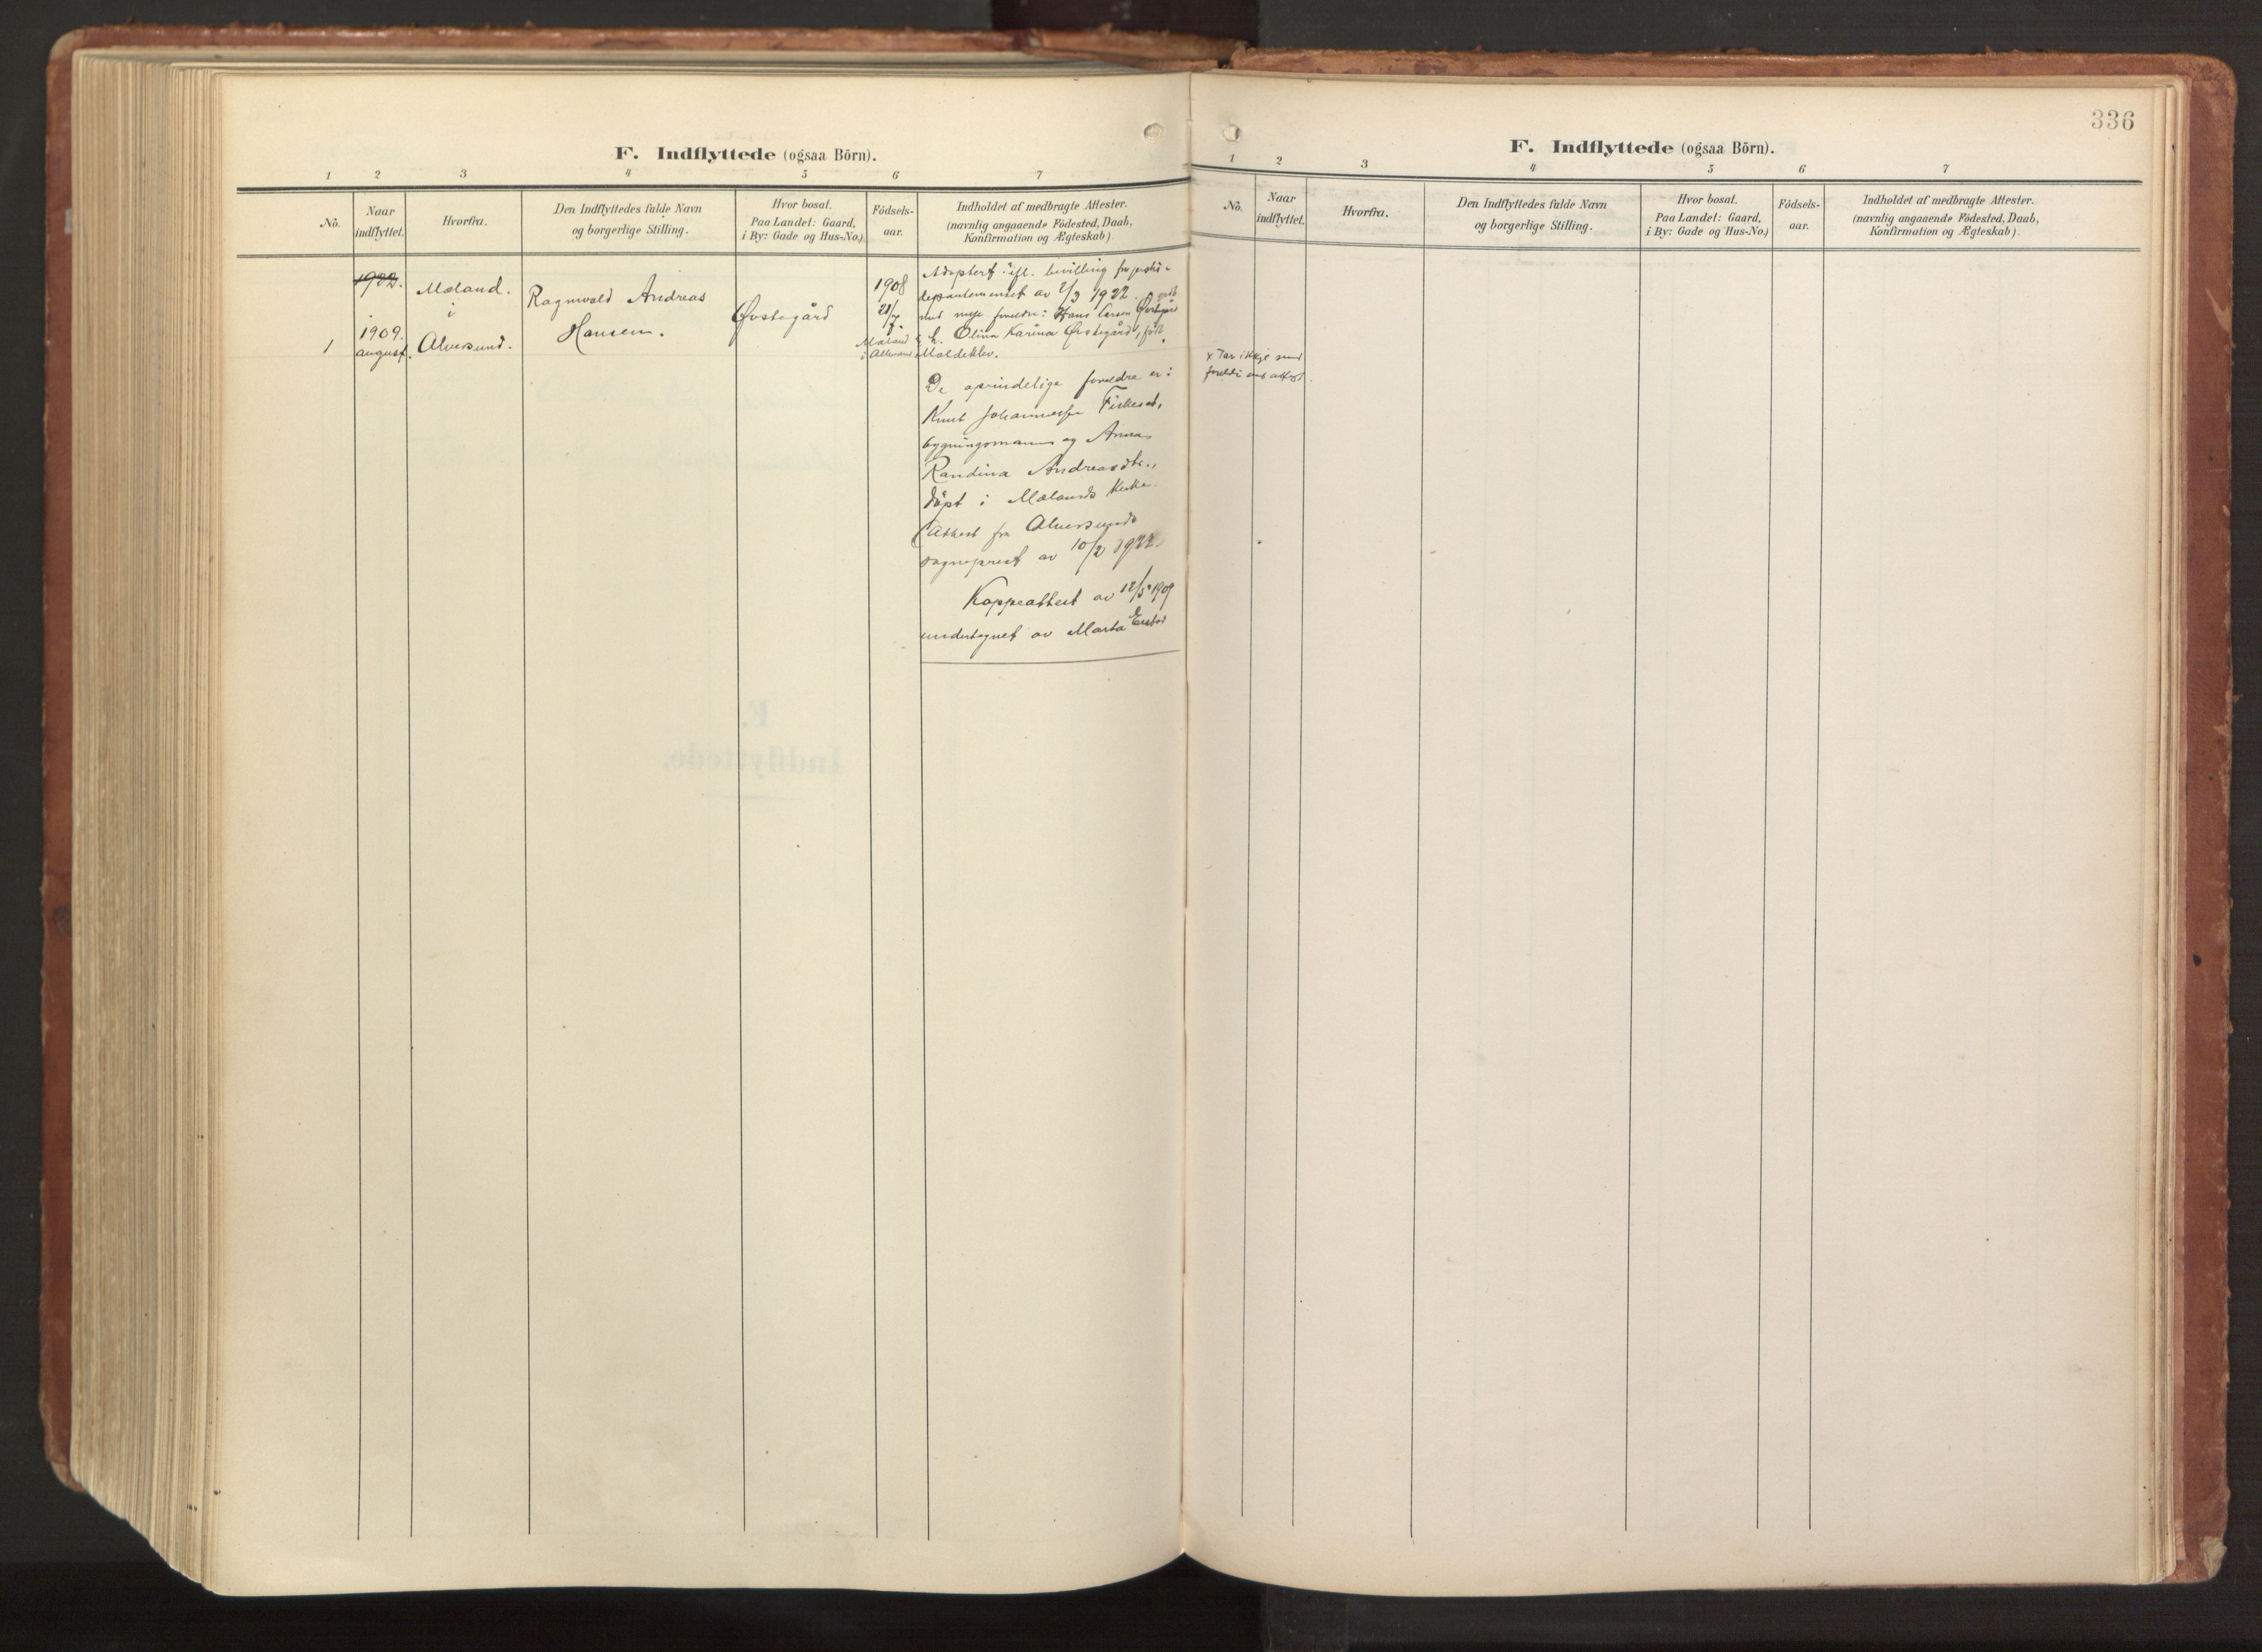 F. Indflyttede (ogsaa Börn).
1 2 3 4 5 6 7
No.
Naar
indflyttet.
Hvorfra.
Den Indflyttedes fulde Navn
og borgerlige Stilling.
Hvor bosat.
Paa Landet: Gaard,
i By: Gade og Hus-No.)
Födsels-
aar.
Indholdet af medbragte Attester.
(navnlig angaaende Födested, Daab,
Konfirmation og Ægteskab).
1
1922.
1909.
august.
Mæland.
i
Alversund.
Ragnvald Andreas
Hansen.
Øvstegård
1908
21/7.
Mæland
i
Adoptert ifl. bevilling fra justis-
departementet av 2/3 1922
med nye foreldre: Hans Larsen Øvstegård
h. Olina Karina Øvstegård, født
Moldeklev.
De oprindelige foreldre er:
Knut Johannessen Fiskeset,
bygningsmann og Anna
Randina Andreasdtr.,
døpt i Mælands kirke.
(Attest fra Alversunds
sogneprest av 10/2 1922.
Koppeattest av 12/5 1909
undertegnet av Marta
336
F. Indflyttede (ogsaa Börn).
1 2 3 4 5 6 7
No.
Naar
indflyttet.
Hvorfra.
Den Indflyttedes fulde Navn
og borgerlige Stilling.
Hvor bosat.
Paa Landet: Gaard,
i By: Gade og Hus-No.)
Födsels-
aar.
Indholdet af medbragte Attester.
(navnlig angaaende Födested, Daab,
Konfirmation og Ægteskab).
x Tar ikkje med